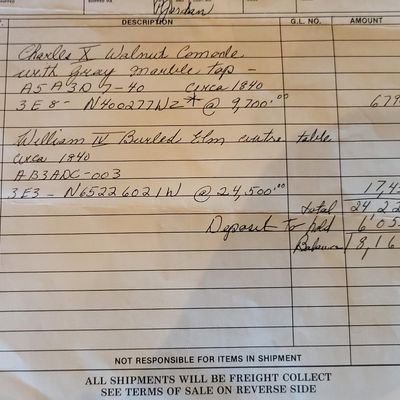 Jordan
DESCRIPTION G.L. NO. AMOUNT
Charles X Walnut Comode
with gray marble top -
A5A3D7-40 circa 1840
3E8- N400277WZ* @ 9,700.00 679
William IV Burled Elm centre table
circa 1840
AB3ADC-003
3E3- N6522602IW @ 24,500.00 17,4
total 24,22
Deposit To hold 6,05
Balance 18,16
NOT RESPONSIBLE FOR ITEMS IN SHIPMENT
ALL SHIPMENTS WILL BE FREIGHT COLLECT
SEE TERMS OF SALE ON REVERSE SIDE